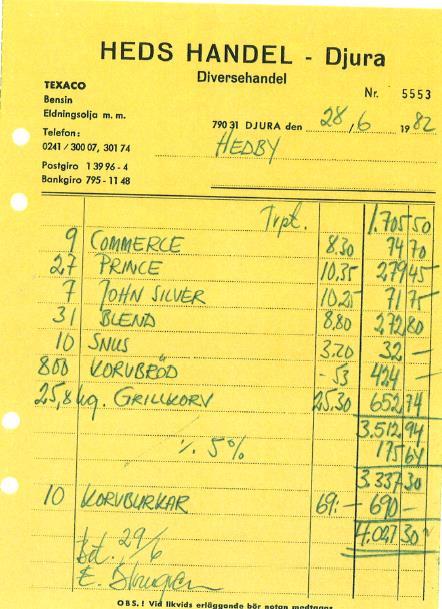 HEDS HANDEL - Djura
Diversehandel
TEXACO
Bensin
Eldningsolja m. m.
Nr. 5553
790 31 DJURA den 28,6 1982
Telefon:
0241 / 300 07, 301 74
HEDBY
Postgiro 1 39 96 - 4
Bankgiro 795 - 11 48
Trpt. 1.705 50
9 COMMERCE 8.30 74 70
27 PRINCE 10,35 279 45
7 JOHN SILVER 10,25 71 75
31 BLEND 8,80 272 80
10 SNUS 3.20 32 —
800 KORVBRÖD - 53 424 —
25,8 kg. GRILLKORV 25,30 652 74
3.512 94
%. 5% 175 64
3.337 30
10 KORVBURKAR 69:- 690 -
4.027 30
Bet. 29/6
E.
OBS.! Vid likvids erläggande bör notan medtagas